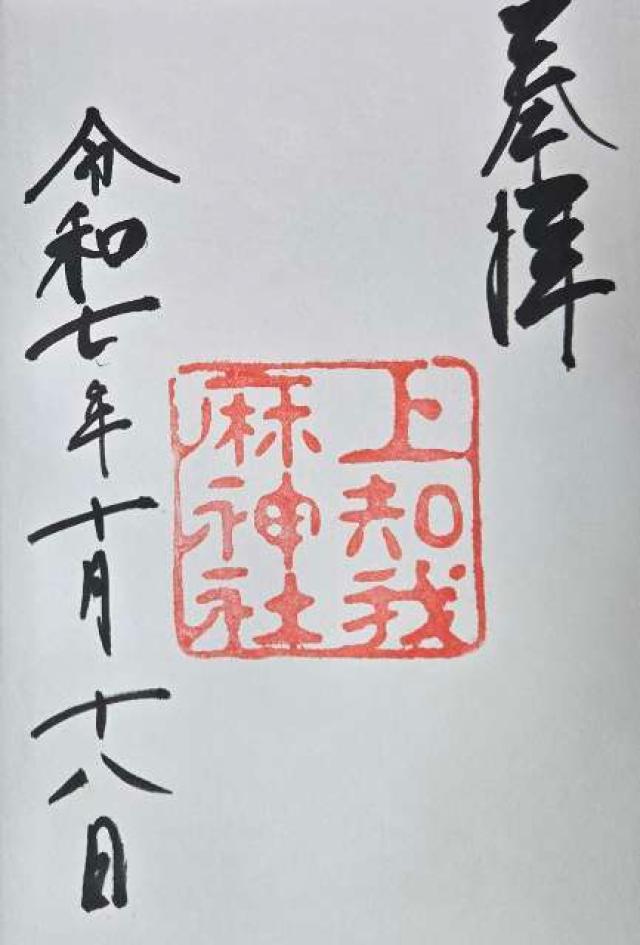 奉拝
上知我
麻神社
令和七年十月十八日